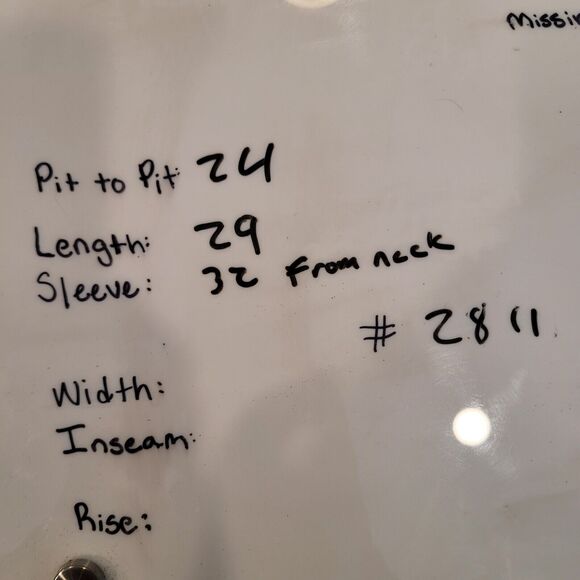 Pit to Pit 24
Length: 29
Sleeve: 32 from neck
# 2811
Width:
Inseam:
Rise: